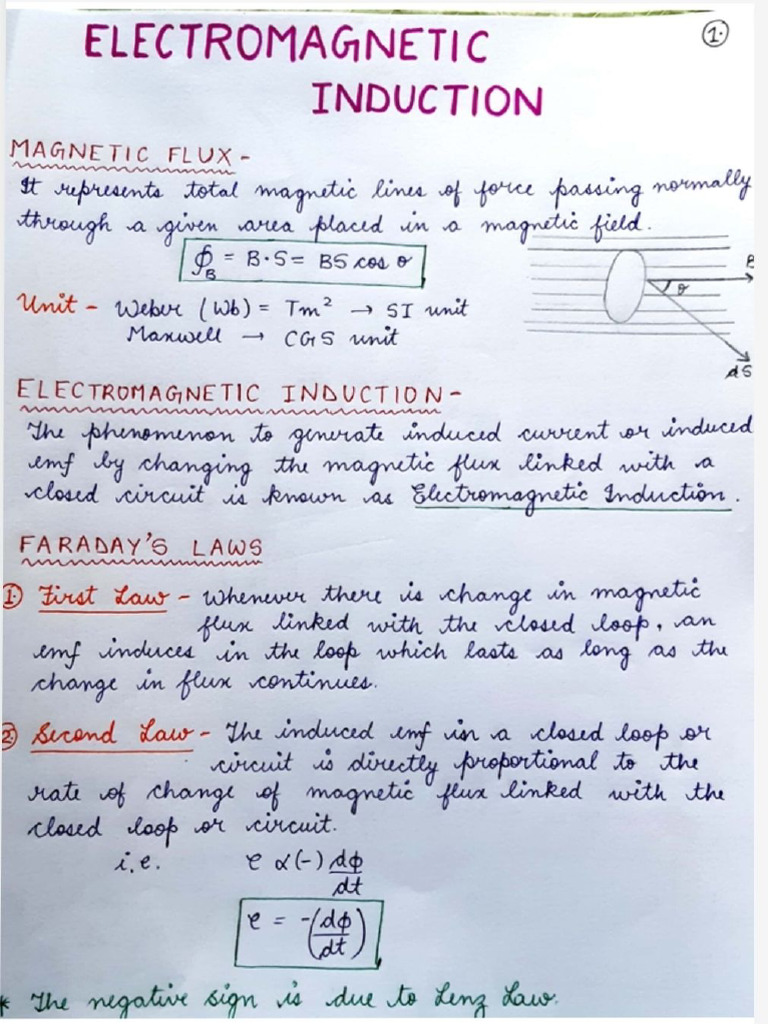 1.
ELECTROMAGNETIC
INDUCTION
MAGNETIC FLUX -
It represents total magnetic lines of force passing normally
through a given area placed in a magnetic field.
ϕB = B·S = BS cos θ
Unit - Weber (Wb) = Tm² → SI unit
Maxwell → CGS unit
B
θ
dS
ELECTROMAGNETIC INDUCTION -
The phenomenon to generate induced current or induced
emf by changing the magnetic flux linked with a
closed circuit is known as Electromagnetic Induction.
FARADAY'S LAWS
① First Law - Whenever there is change in magnetic
flux linked with the closed loop, an
emf induces in the loop which lasts as long as the
change in flux continues.
② Second Law - The induced emf in a closed loop or
circuit is directly proportional to the
rate of change of magnetic flux linked with the
closed loop or circuit.
i.e. e α (-) dϕ/dt
e = -(dϕ/dt)
* The negative sign is due to Lenz Law.